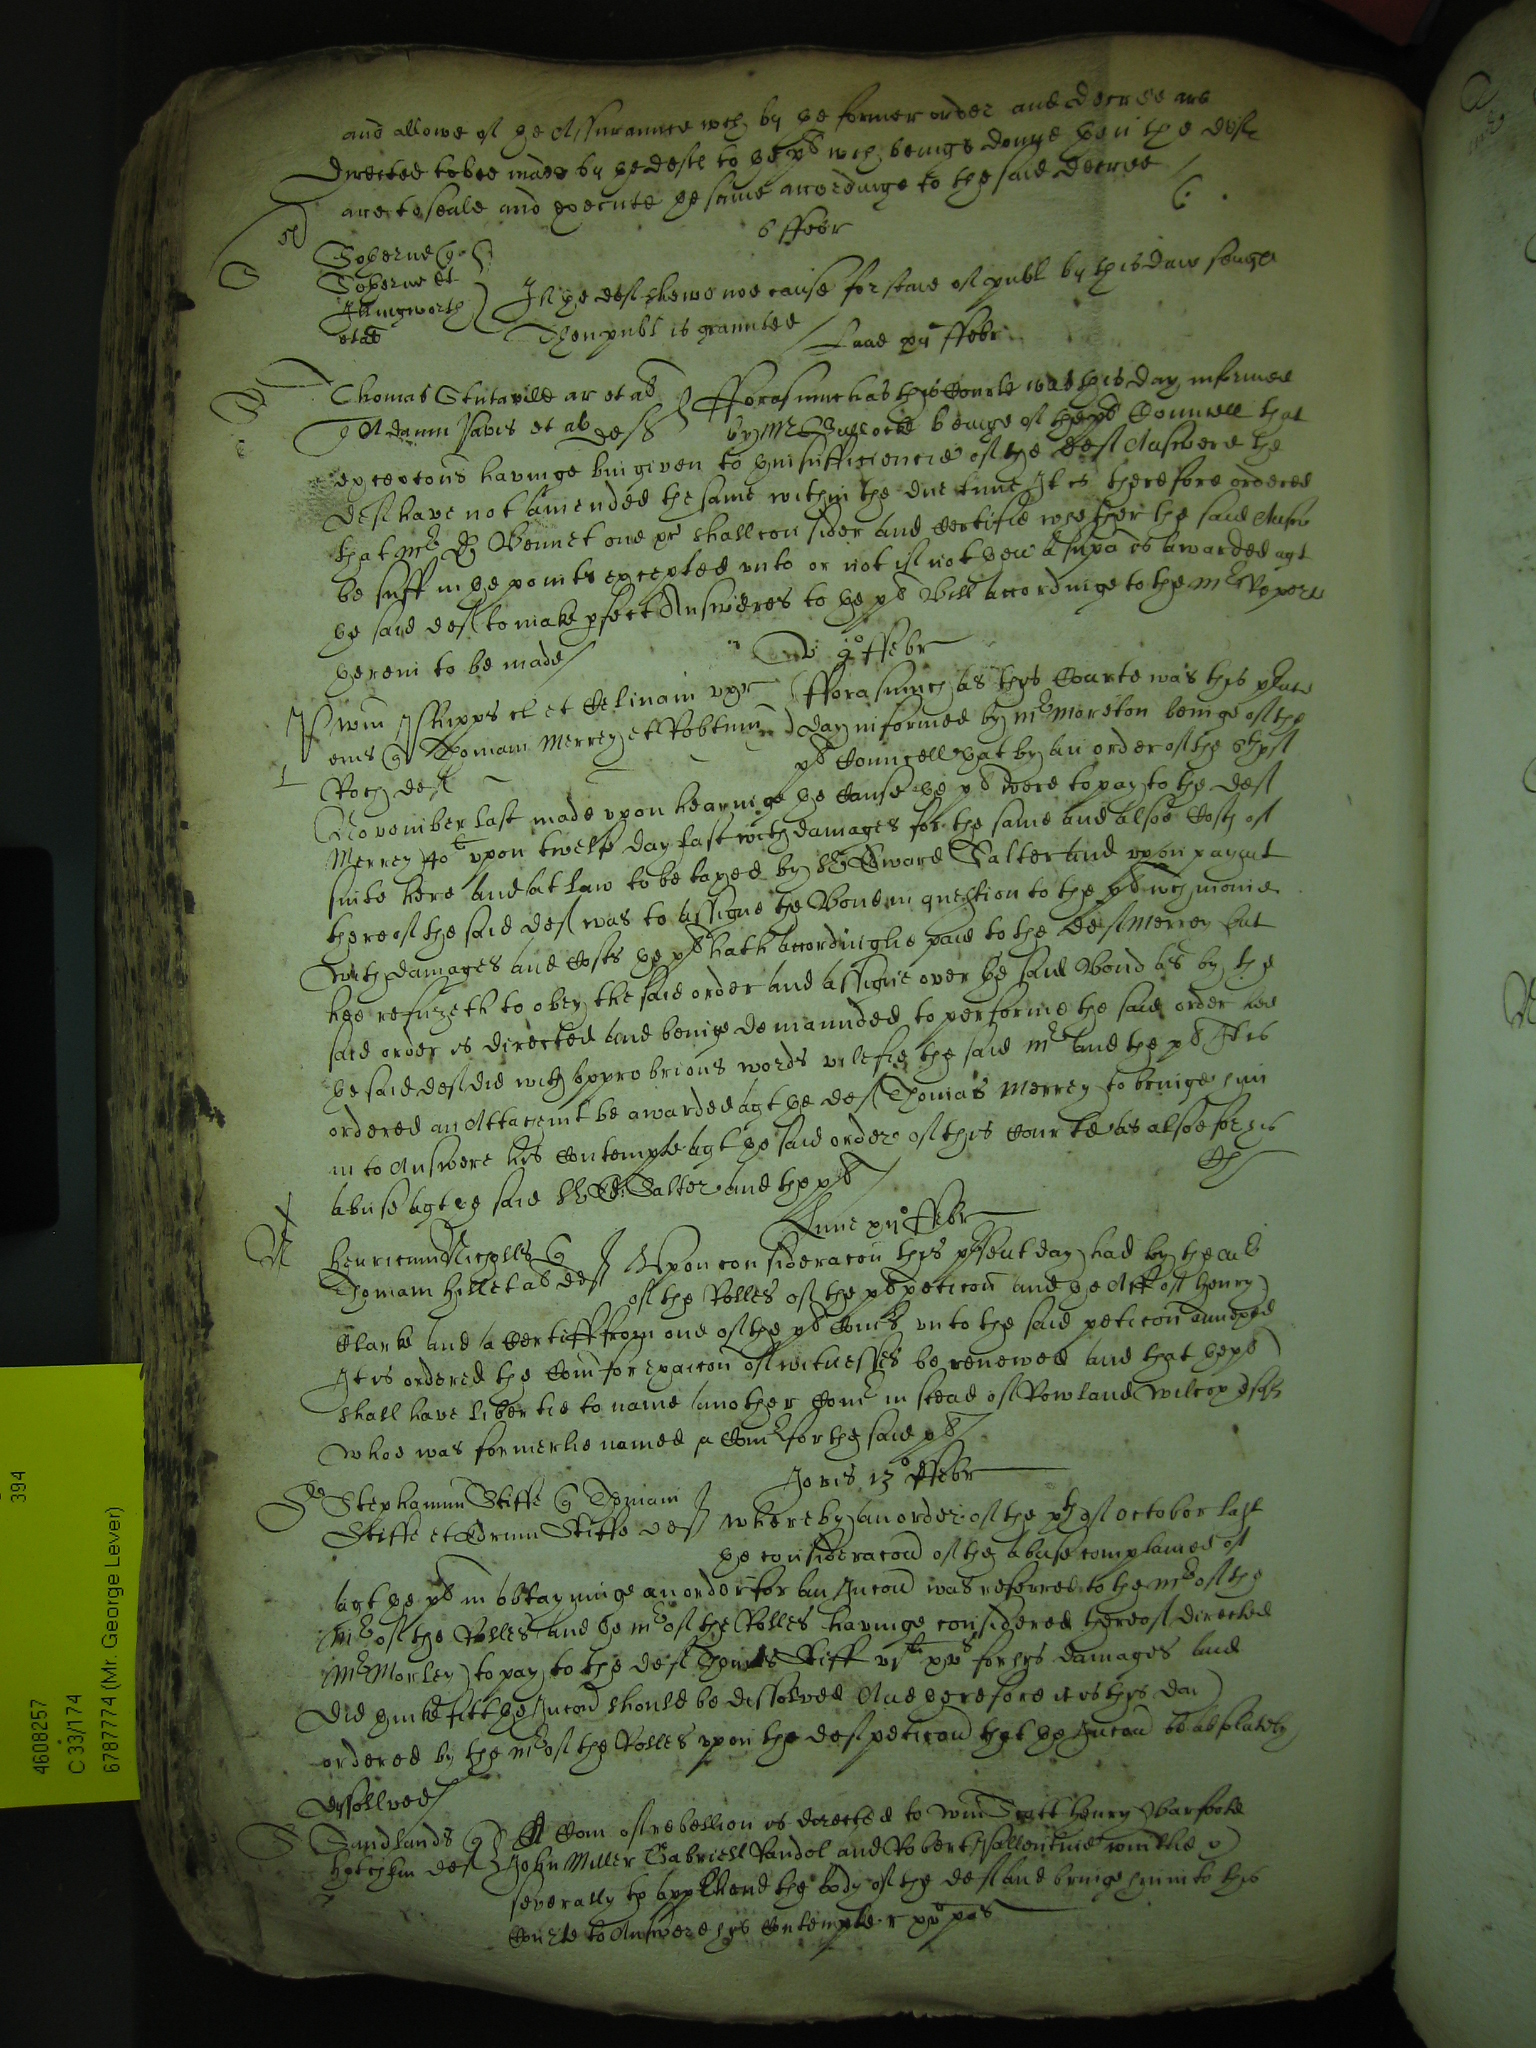 and allowe of the Assuraunce wch by the former order and decree are
directed to bee made by the deft to the pl wch beinge donne then the deft
are to seale and execute the same accordinge to the said decree
6 ffebr
If the deft shewe noe cause for staie of publ by this daie senight
Illingworth
et al
Then publ is graunted
xii ffebr
Thomas Stutavile ar et al
fforasmuch as this Courte was this day informed
Adamm et al deft
by Mr Bullocke beinge of the pl Councell that
excepcons havinge bin given to the insufficiencie of the deft Answere the
deft have not amended the same within the due time It is therefore ordered
that Mr D Bennet one pr shall consider and certifie whether the said Answ
be suff in the points excepted unto or not if not then a supa is awarded agt
the said deft to make pfect Answeres to the pl Bill accordinge to the Mr Reporte
therein to be made
9o ffebr
Willm Phipps et Celinam uxr
fforasmuch as this Courte was this psent
eius Thomam Merrey et Robtum
day informed by Mr Moreton beinge of the
deft
pl Councell that by an order of the
November last made upon hearinge the cause the pl were to pay to the deft
Merrey 40l upon twelfe day last with damages for the same and alsoe costs of
suite here and at law to be taxed by Sr Edward Salter and upon paymt
thereof the said deft was to assigne the Bond in question to the pl wch monie
with damages and costs the pl hath accordinglie paid to the deft Merrey but
hee refuseth to obey the said order and assigne over the said Bond as by the
said order is directed and beinge demaunded to performe the said order hee
the said deft did with opprobrious words vilefie the said Mr and the pl It is
ordered an Attachmt be awarded agt the deft Thomas Merrey to bringe him
in to Answere his contempte agt the said order of this Courte as alsoe for his
abuse agt the said Sr Ed: Salter and the pl
Lune xii ffebr
Henricum Nicholls
Upon consideracon this psent day had by the Mr
Thomam Hill et al deft
of the Rolles of the pl peticon and the Aff of Henry
Clarke and a Certiff from one of the pl Comrs unto the said peticon annexed
It is ordered the Com for exaicon of witnesses be renewed and that the pl
shall have libertie to name another Comr in stead of Rowland Wilcox
whoe was formerlie named a Comr for the said pl
Jovis 13o ffebr
Stephanum Stiffe Thomam
Stiffe et Edrum Stiffe deft
whereby an order of the of October last
the consideracon of the abuse complained of
agt the pl in obtayninge an order for an Iniucon was referred to the Mr of the
Mr of the Rolles and the Mr of the Rolles havinge considered thereof directed
Mr Morley to pay to the deft Thomas Stiff for his damages and
did thinke fitt the Iniucon should be dissolved And therefore it is this day
ordered by the Mr of the Rolles upon the deft peticon that the Iniucon be absolutely
dissolved
Sandlands
A Com of rebellion is directed to Willm Scott Henry Barfoote
Hotchkin deft
John Miller Gabriell Randol and Robert Vallentine
severally to apprehend the body of the deft and bringe him into this
Courte to Answere his contempte
394
4608257
C 33/174
6787774 (Mr. George Lever)